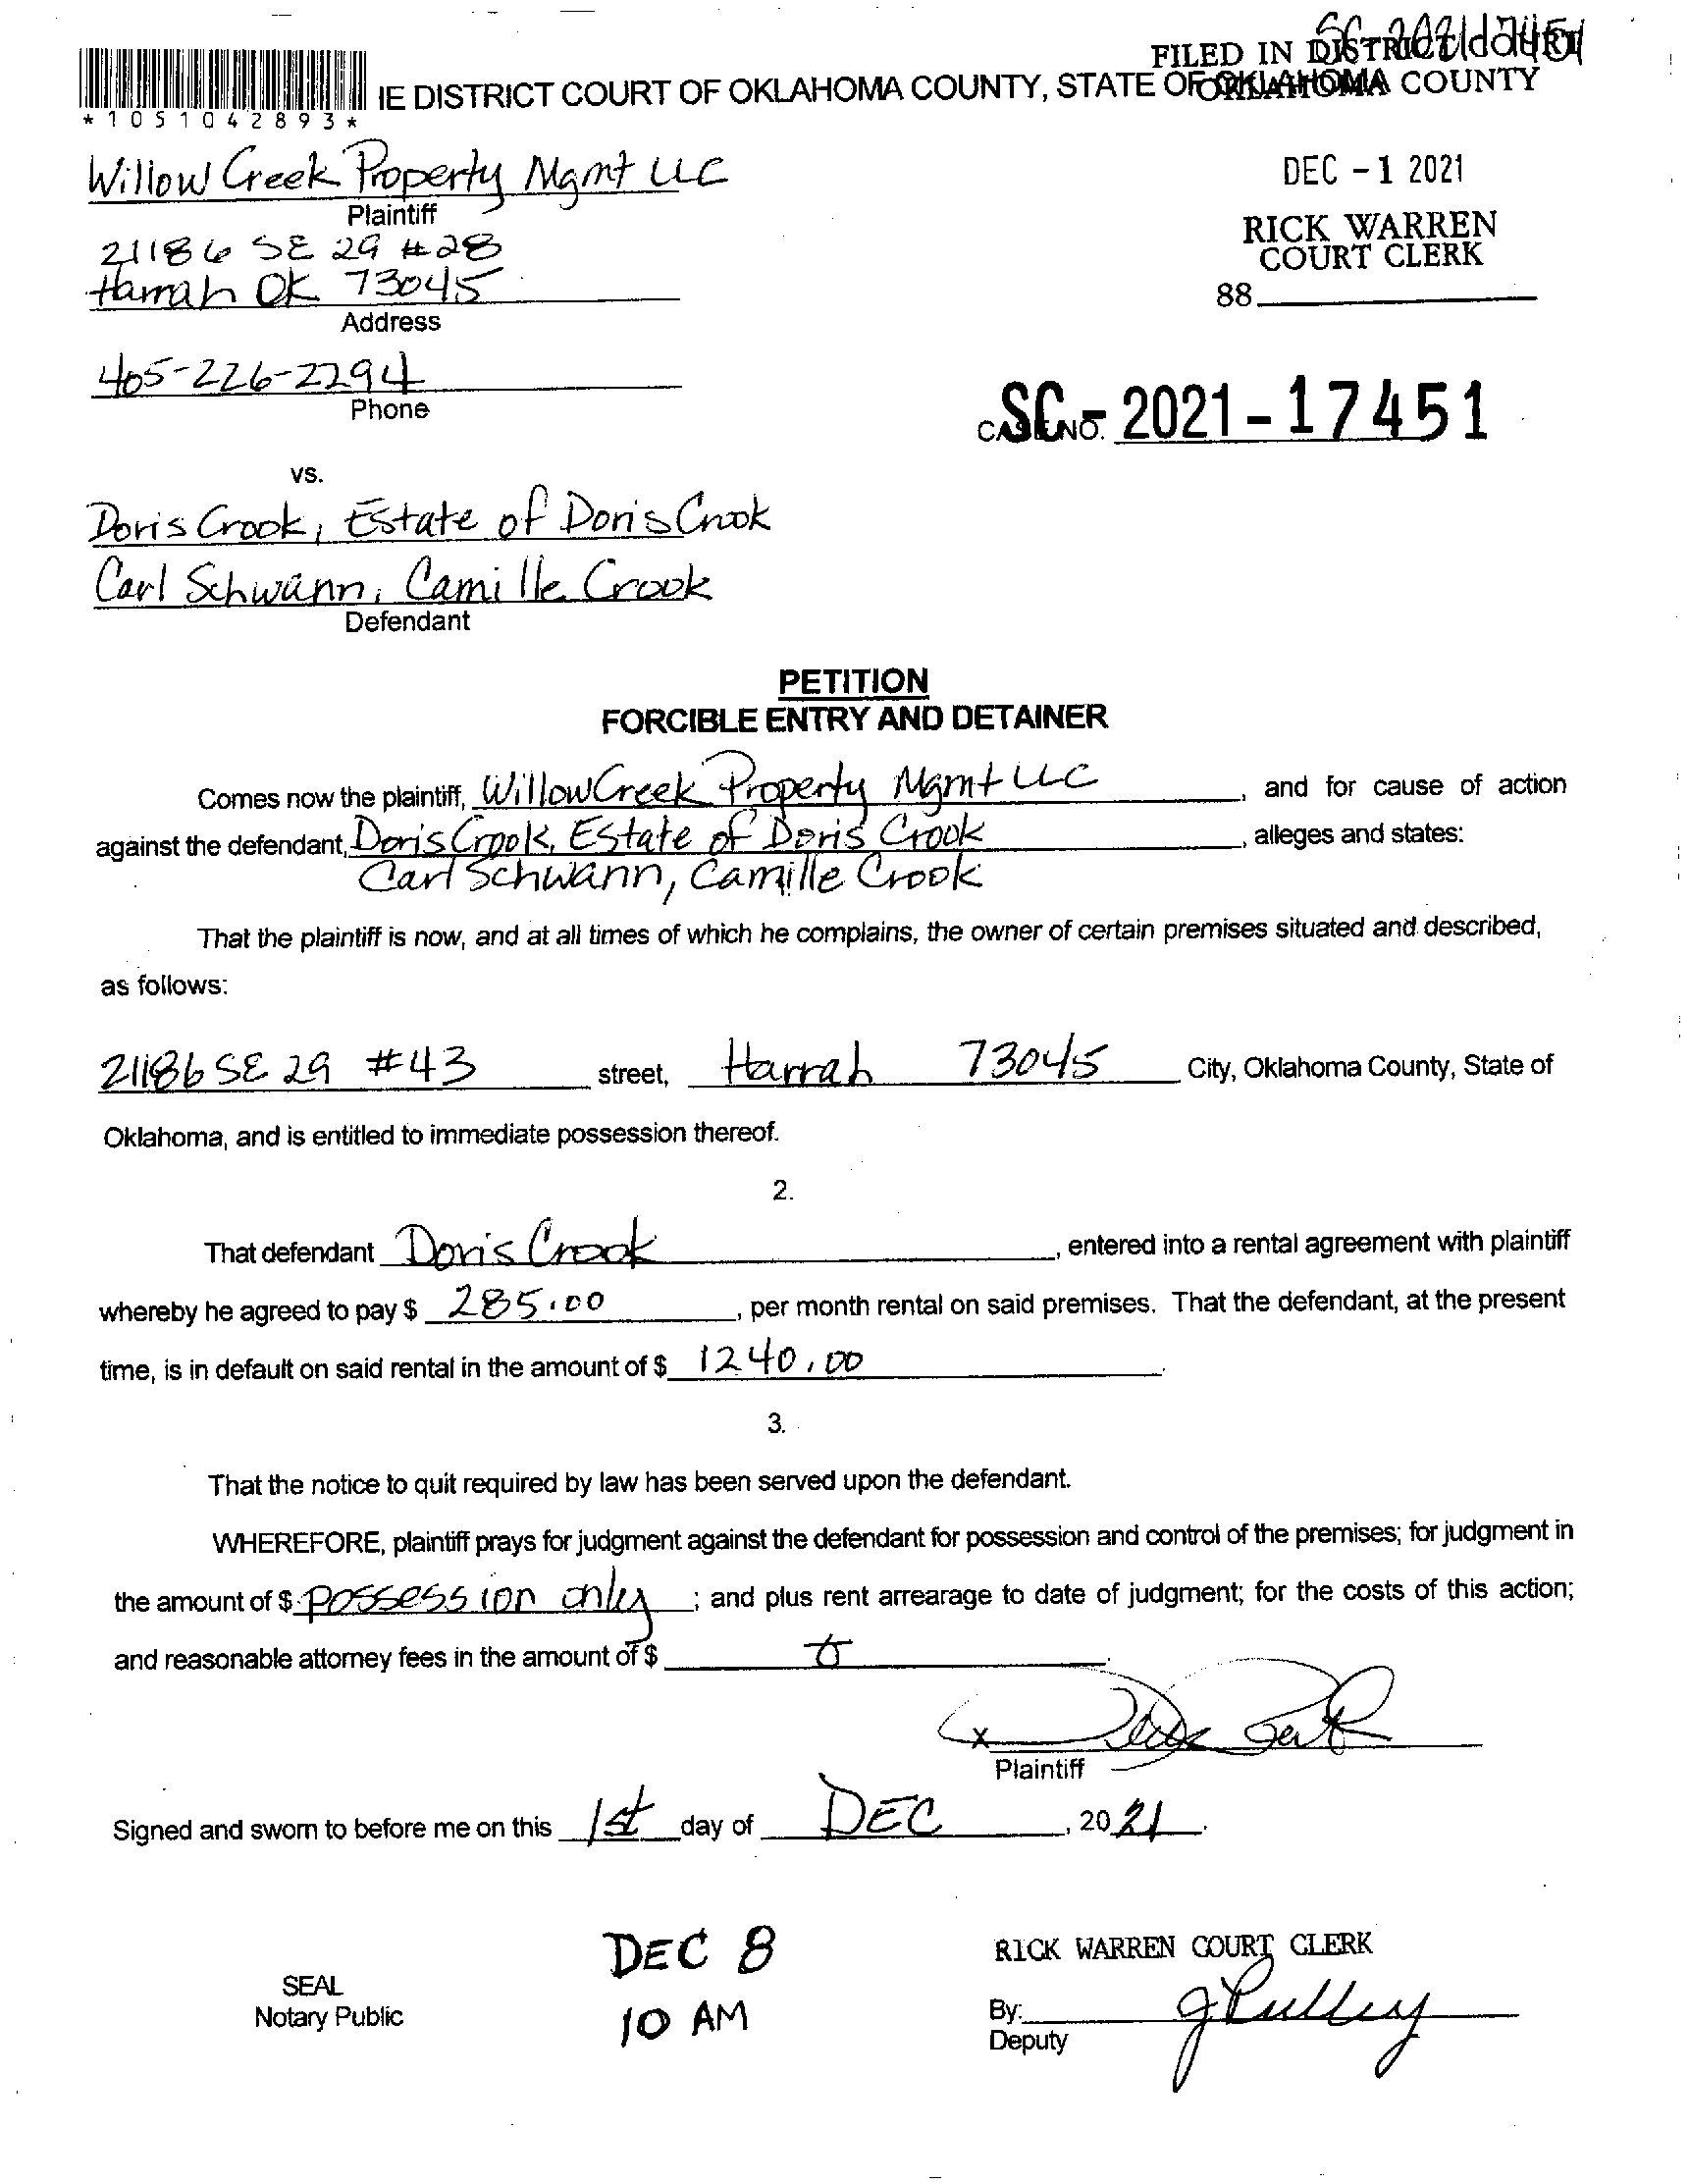 SC-2021-17451
FILED IN DISTRICT COURT
OKLAHOMA COUNTY
IE DISTRICT COURT OF OKLAHOMA COUNTY, STATE OF OKLAHOMA
*1051042893*
Willow Creek Property Mgmt LLC
Plaintiff
DEC -1 2021
21186 SE 29 #28
RICK WARREN
COURT CLERK
Harrah OK 73045
88
Address
405-226-2294
Phone
CASE NO. SC-2021-17451
vs.
Doris Crook, Estate of Doris Crook
Carl Schwann, Camille Crook
Defendant
PETITION
FORCIBLE ENTRY AND DETAINER
Comes now the plaintiff, Willow Creek Property Mgmt LLC, and for cause of action
against the defendant, Doris Crook, Estate of Doris Crook, alleges and states:
Carl Schwann, Camille Crook
That the plaintiff is now, and at all times of which he complains, the owner of certain premises situated and described,
as follows:
21186 SE 29 #43 street, Harrah 73045 City, Oklahoma County, State of
Oklahoma, and is entitled to immediate possession thereof.
2.
That defendant Doris Crook, entered into a rental agreement with plaintiff
whereby he agreed to pay $ 285.00, per month rental on said premises. That the defendant, at the present
time, is in default on said rental in the amount of $ 1240.00.
3.
That the notice to quit required by law has been served upon the defendant.
WHEREFORE, plaintiff prays for judgment against the defendant for possession and control of the premises; for judgment in
the amount of $ possession only; and plus rent arrearage to date of judgment; for the costs of this action;
and reasonable attorney fees in the amount of $
x
Plaintiff
Signed and sworn to before me on this 1st day of DEC, 2021.
DEC 8
RICK WARREN COURT CLERK
SEAL
Notary Public
10 AM
By: J Pulley
Deputy